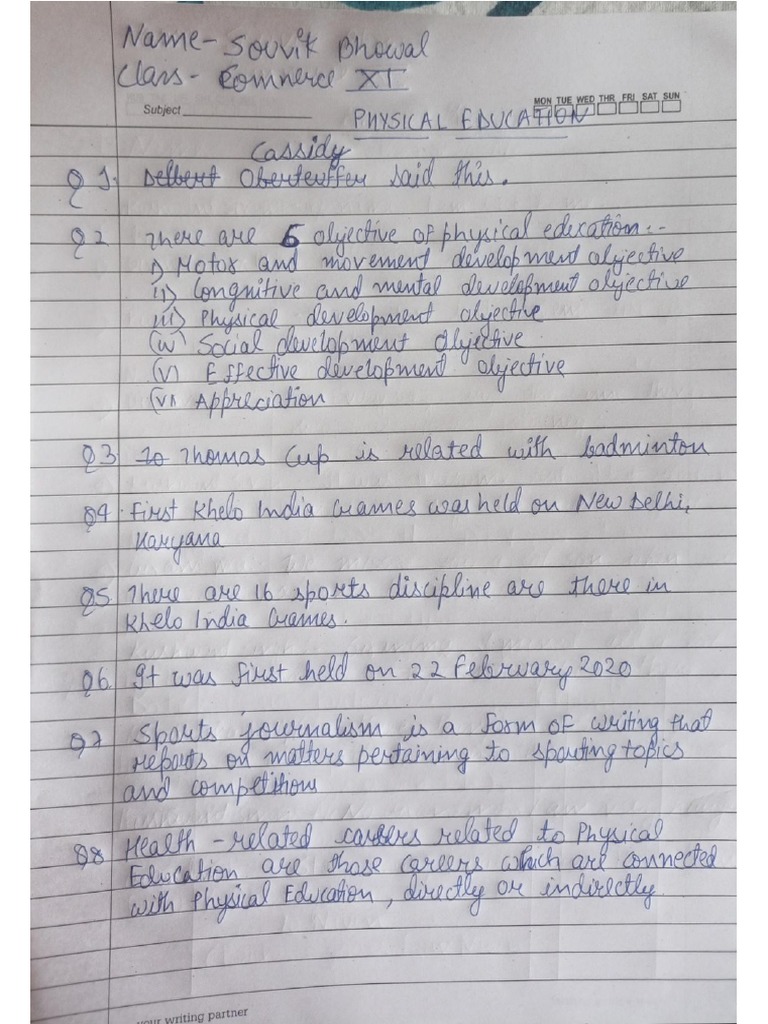 Name- Souvik Bhowal
Class- Commerce XI
Subject
MON TUE WED THR FRI SAT SUN
PHYSICAL EDUCATION
Cassidy
Q 1. Delbert Oberteuffer said this.
Q 2 There are 6 objective of physical education:-
i) Motor and movement development objective
ii) Congnitive and mental development objective
iii) Physical development objective
(iv) Social development objective
(v) Effective development objective
(vi Appreciation
Q3 To Thomas Cup is related with badminton
Q4 . First Khelo India Games was held on New Delhi,
Haryana
Q5 There are 16 sports discipline are there in
Khelo India Games.
Q6. It was first held on 22 February 2020
Q7 Sports journalism is a form of writing that
reports on matters pertaining to sporting topics
and competitions
Q8 Health-related careers related to Physical
Education are those careers which are connected
with Physical Education, directly or indirectly.
your writing partner